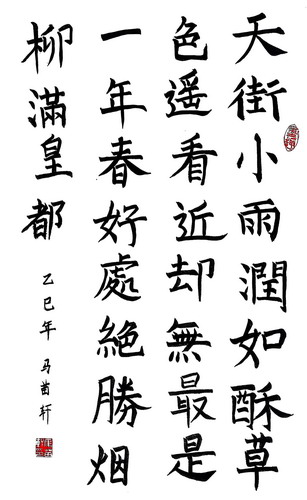 天街小雨潤如酥草
色遥看近却無最是
一年春好處絶勝烟
柳滿皇都
乙巳年 马茵轩